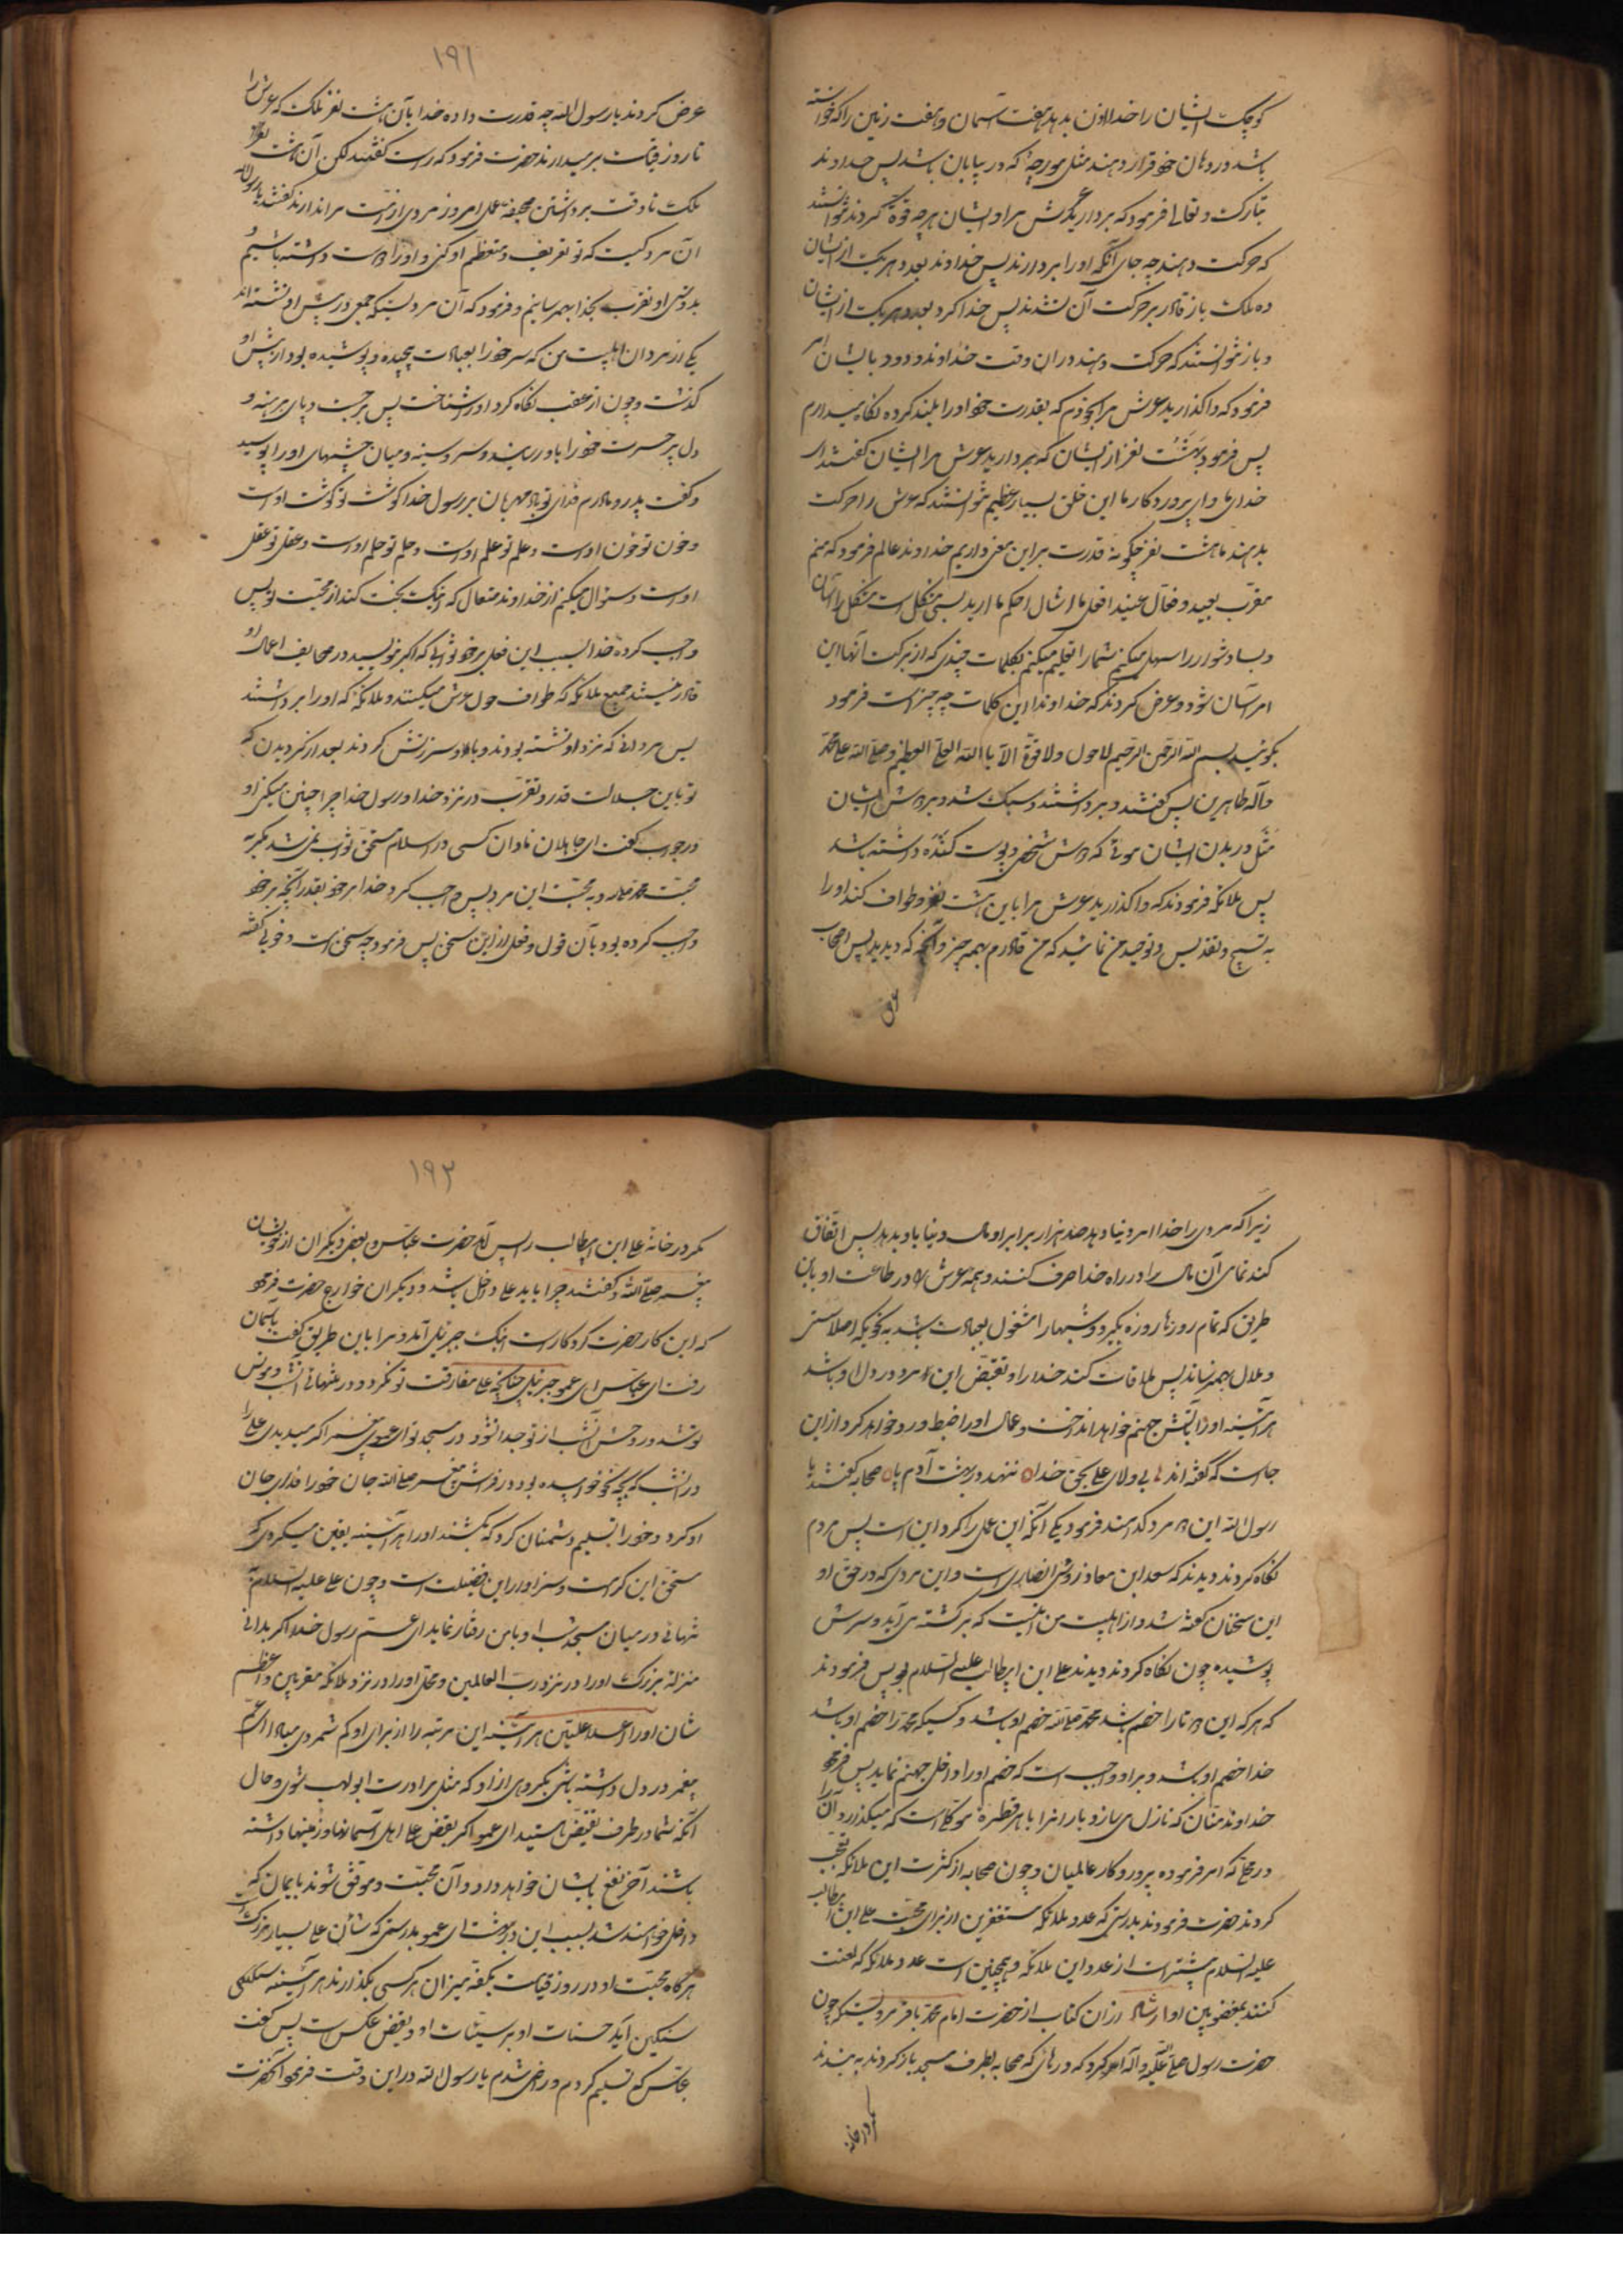 کوچک ایشان را خدا اذن بدهد هفت آسمان و هفت زمین را که خواسته
باشد در دهان خود قرار دهند مثل مورچهٔ که در بیابان باشد پس خداوند
تبارک و تعالی فرمود که بردارید عرش مرا و ایشان هر چه قوة کردند نتوانستند
که حرکت دهند چه جای آنکه او را بردارند پس خداوند بعدد هر یک از ایشان
ده ملک باز قادر بر حرکت آن نشدند پس خدا کرد بعدد هر یک از ایشان
و باز نتوانستند که حرکت دهند در آن وقت خداوند ودود بایشان امر
فرمود که واگذارید عرش مرا بخودم که بقدرت خود او را بلند کرده نگاه میدارم
پس فرمود بهشت نفر از ایشان که بردارید عرش مرا ایشان گفتند ای
خدای ما و ای پروردگار ما این خلق بسیار عظیم نتوانستند که عرش را حرکت
بدهند ما هشت نفر چگونه قدرت بر این معنی داریم خداوند عالم فرمود که منم
مقرب بعید و فعال
و بسا دشوار را سهل میکنم شما را تعلیم میکنم بکلمات چندی که از برکت آنها این
امر آسان شود و عرض کردند که خداوندا این کلمات چه چیز است فرمود
بگوئید بسم الله الرحمن الرحیم لا حول ولا قوة الا بالله العلی العظیم وصلی الله علی محمد
وآله طاهرین پس گفتند و برداشتند و سبک شد و بر دوش ایشان
مثل در بدن انسان موئی که دوش شخص و پوست کننده داشته باشد
پس ملائکه فرمودند که واگذارید عرش مرا باین هشت نفر و طواف کنند او را
به تسبیح و تقدیس و توحید من نمائید که من قادرم بهمه چیز و آنچه که دیدید پس اصحاب
عرض
۱۹۱
عرض کردند یا رسول الله چه قدرت داده خدا بآن هشت نفر ملک که عرش را
تا روز قیامت برمیدارند حضرت فرمود که راست گفتید لکن آن هشت نفر
ملک تا وقت برداشتن صحیفه عمل امروز مردی از امت مرا ندارند گفتند یا رسول الله
آن مرد کیست که تو تعریف و تعظیم او کنی و او را دوست داشته باشیم
بدوستی او تقرب بخدا بهم رسانیم و فرمود که آن مردیست که جمعی در پیش او نشسته اند
یکی از مردان اهلبیت من که سر خود را بعبادت پیچیده و پوشیده بود از پیش او
گذشت و چون از عقب نگاه کرد او را شناخت پس برجست و پای برهنه و
دل پر حسرت خود را باو رسانید و سر و سینه و میان چشمهای او را بوسید
و گفت پدر و مادرم فدای تو باد مهربان بر رسول خدا گوشت تو گوشت اوست
و خون تو خون اوست و علم تو علم اوست و حلم تو حلم اوست و عقل تو عقل
اوست و سؤال میکنم از خداوند متعال که اینک بخت کند از محبت تو پس
واجب کرده خدا بسبب این فعل بر خود ثوابی که اگر بنویسید در صحایف اعمال او
قادر نیستند جمیع ملائکه که طواف حول عرش میکنند و ملائکه که او را برداشتند
پس مردانی که نزد او نشسته بودند و باو سرزنش کردند بعد از گردیدن که
تو باین جلالت قدر و تقرب در نزد خدا و رسول خدا چرا چنین میکنی او
در جواب گفت ای جاهلان نادان کسی در اسلام مستحق ثواب نمی شد مگر به
محبت محمد و به محبت این مرد پس واجب کرد خدا بر خود بقدر آنچه بر خود
واجب کرده بود بآن قول و فعل از این سخن پس فرمود چه سخن است و خوب گفته
زیرا که مردی را خدا امر دنیا دهد صد هزار برابر او مال دنیا باو بدهد پس اتفاق
کند تمامی آن مال را در راه خدا صرف کنند و همه عرش را در طاعت او باین
طریق که تمام روزها روزه بگیرد و شبها را مشغول بعبادت باشد به نحویکه اصلا سستی
و ملال بهم نرساند پس ملاقات کند خدا را و بغض این مرد در دل او باشد
هر آینه او را بآتش جهنم خواهد انداخت و عمل او را ضبط و رد خواهد کرد از این
جاست که گفته اند بی ولای علی بحق خدا ننهد در بهشت آدم پا صحابه گفتند یا
رسول الله این مرد کدامند فرمود یکی آنکه این عمل را کرد این است پس مردم
نگاه کردند و دیدند که سعد ابن معاذ انصاری است و این مردی که در حق او
این سخنان گفته شد و از اهلبیت من اینست که برگشته می آید و سرش
پوشیده چون نگاه کردند دیدند علی ابن ابیطالب علیه السلام بود پس فرمودند
که هر که این دو تا را خصم باشد محمد خصم او باشد و کسیکه محمد را خصم او باشد
خدا خصم او باشد و بر او واجب است که خصم او را داخل جهنم نماید پس فرمود
خداوند منان که نازل می سازد باران را با هر قطره موکلی است که میگذارد آن را
در محلی که امر فرموده پروردگار عالمیان و چون صحابه از کثرت این ملائکه تعجب
کردند حضرت فرمودند بدرستی که عدد ملائکه مستغفرین از برای محبت علی ابن ابیطالب
علیه السلام بیشتر است از عدد این ملائکه و همچنین است عدد ملائکه که لعنت
کنند بمبغضین او در آن کتاب از حضرت امام محمد باقر مرویست که چون
حضرت رسول صلی الله علیه وآله امر کرد که درهائی که صحابه بطرف مسجد باز کردند به بندند
مگر در خانه
۱۹۲
مگر در خانه علی ابن ابیطالب را پس آمد حضرت عباس و بعضی دیگران از خویشان
پیغمبر صلی الله و گفتند چرا باید علی داخل باشد و دیگران خوارج حضرت فرمود
که این کار حضرت کردگار است اینک جبرئیل آمد و مرا باین طریق گفت باسمان
رفت ای عباس ای عمو جبرئیل چنانچه علی مفارقت تو نکرد و در تنهائی انیس و مونس
تو شد در وحش شب از تو جدا نشود در مسجد تو ای عموی پیغمبر اگر میدیدی علی را
در آنشب که بچه نحو خوابیده بود در فراش پیغمبر صلی الله جان خود را فدای جان
او کرد و خود را تسلیم دشمنان کرد که بکشند او را هر آینه یقین میکردی که
مستحق این کرامت و سزاوار این فضیلت است و چون علی علیه السلام
تنهائی در میان مسجد شب او با من رفتار نماید ای عم رسول خدا اگر بدانی
منزلة بزرگ او را در نزد رب العالمین و محل او را در نزد ملائکه مقربین و عظم
شان او را در اعلا علیین هر آینه این مرتبه را از برای او کم شمردی مبادا ای عم
پیغمبر در دل داشته باشی مکروهی از او که مثل برادرت ابولهب شوی و حال
آنکه شما در طرف نقیض هستید ای عمو اگر بغض علی اهل آسمانها و زمینها داشته
باشند آخر نفع بایشان خواهد داد و آن محبت و موفق شوند بایمان که
داخل خواهند شد بسبب این در بهشت ای عمو بدرستی که شأن علی بسیار بزرگ است
هرگاه محبت او در روز قیامت بکفه میزان هر کسی بگذارند هر آینه
سنگین آید حسنات او بر سیئات او و بغض عکس است پس گفت
عباس که تسلیم کردم و راضی شدم یا رسول الله در این وقت فرمود آنحضرت